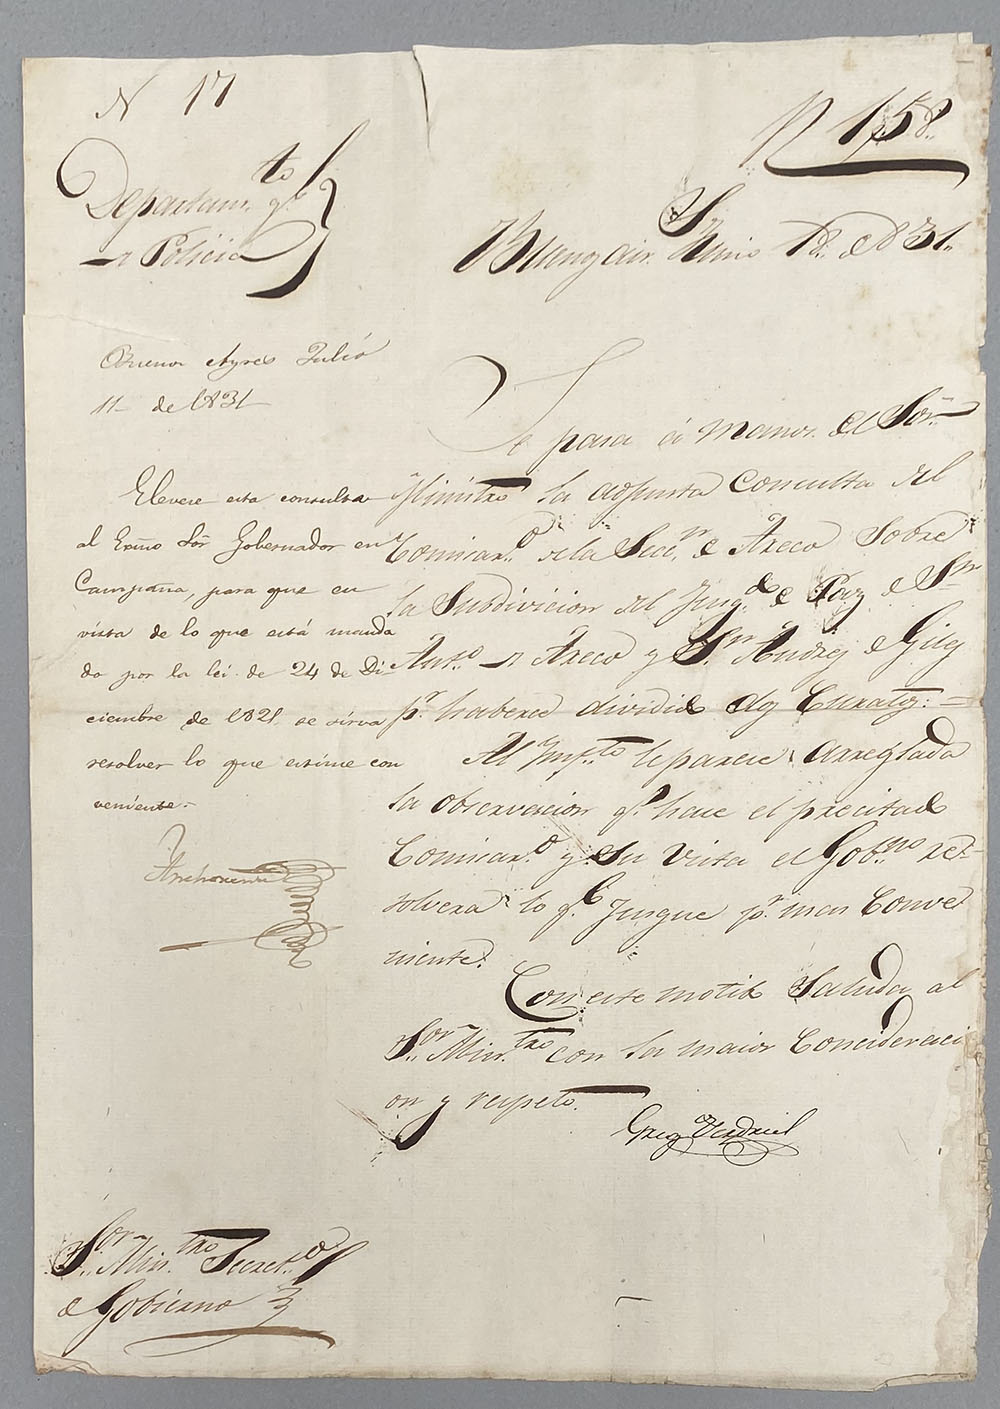 N 17
N 158.
Departam.to gl
de Policia
Buenos air.s Junio 18. de 831.
Buenos Ayres Julio
11 de 1831
Elevese esta consulta
al Exmo Sõr Gobernador en
Campaña, para que en
vista de lo que está manda
do por la lei de 24 de Di
ciembre de 1821 se sirva
resolver lo que estime con
veniente.
Anchorena
Se pasa á manos del Sor.
Ministro la adjunta consulta del
Comisar.o de la Secc.n de Areco sobre
la Subdivicion del Juzg.do de Paz de Sn
Ant.o de Areco y Sn Andres de Giles
p.r haberse dividido dos Curatos.=
Al Inf.to le parece arreglada
la observacion q.e hace el precitado
Comisar.o y en su vista el Gob.no re-
solverá lo q.e Jusgue p.r mas Conve
niente.
Con este motibo Saluda al
S.or Min.tro con la maior Concideraci
on y respeto.
Greg Perdriel
S.or Min.tro Secret.o
de Gobierno